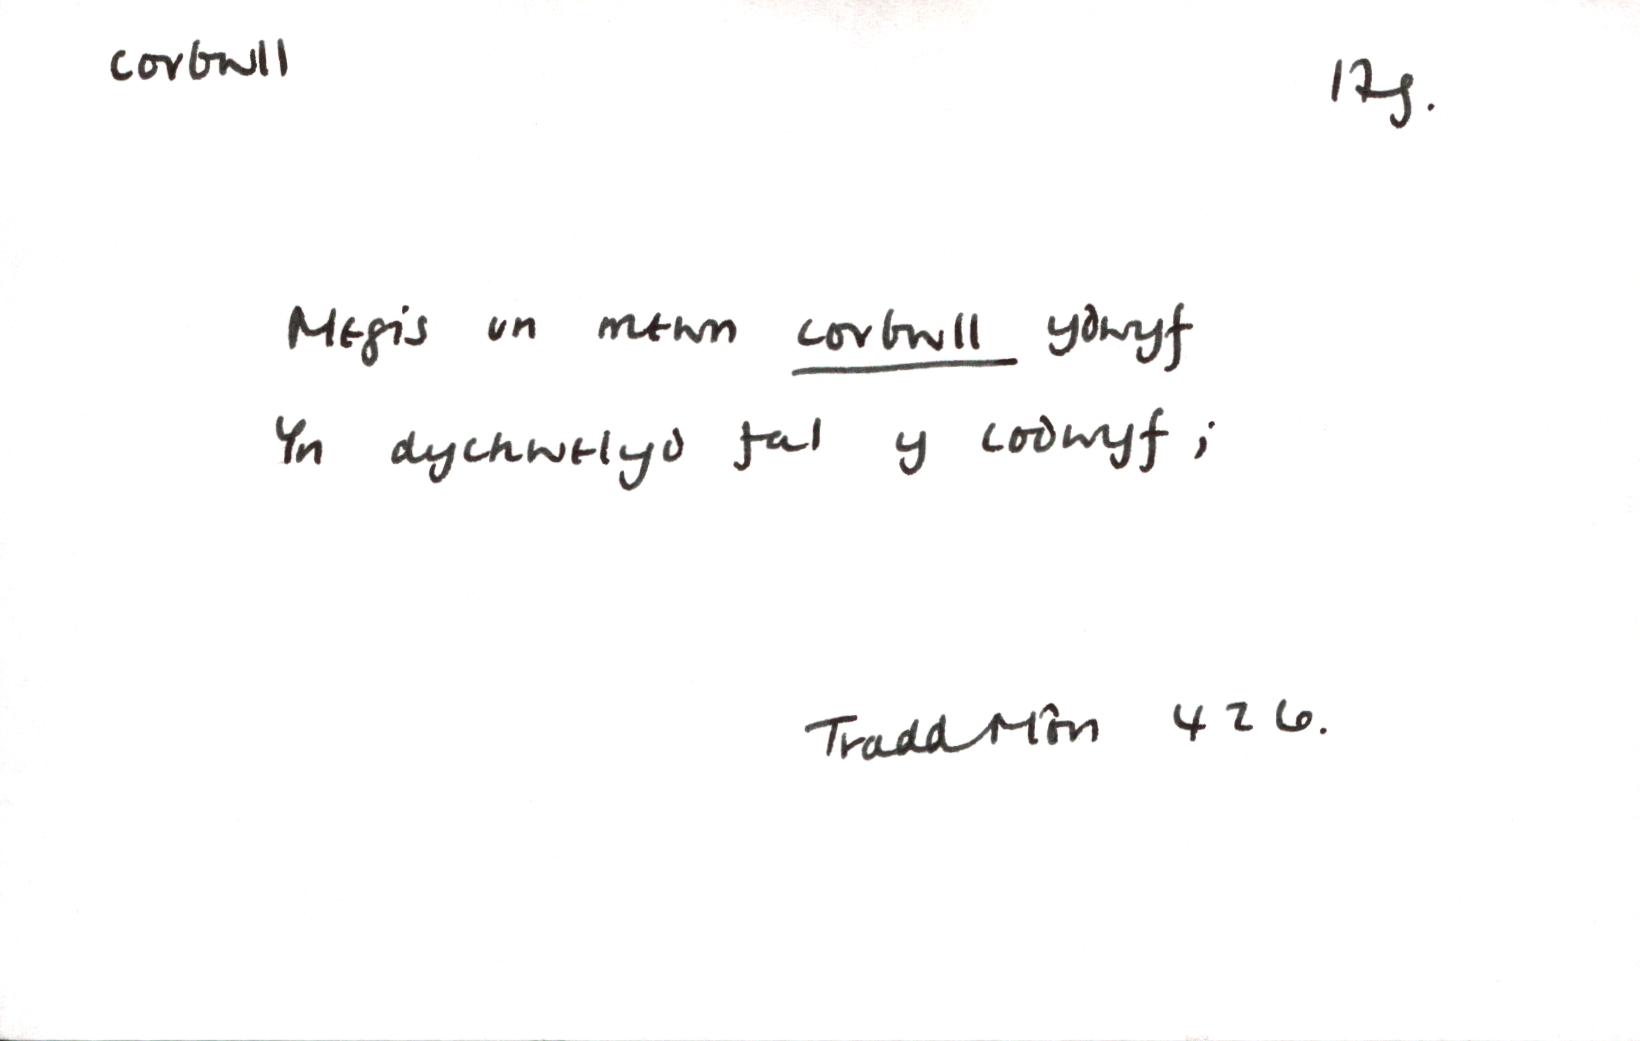 corbwll
17g.
Megis un mewn corbwll ydwyf
Yn dychwelyd fal y codwyf;
Tradd Môn 426.